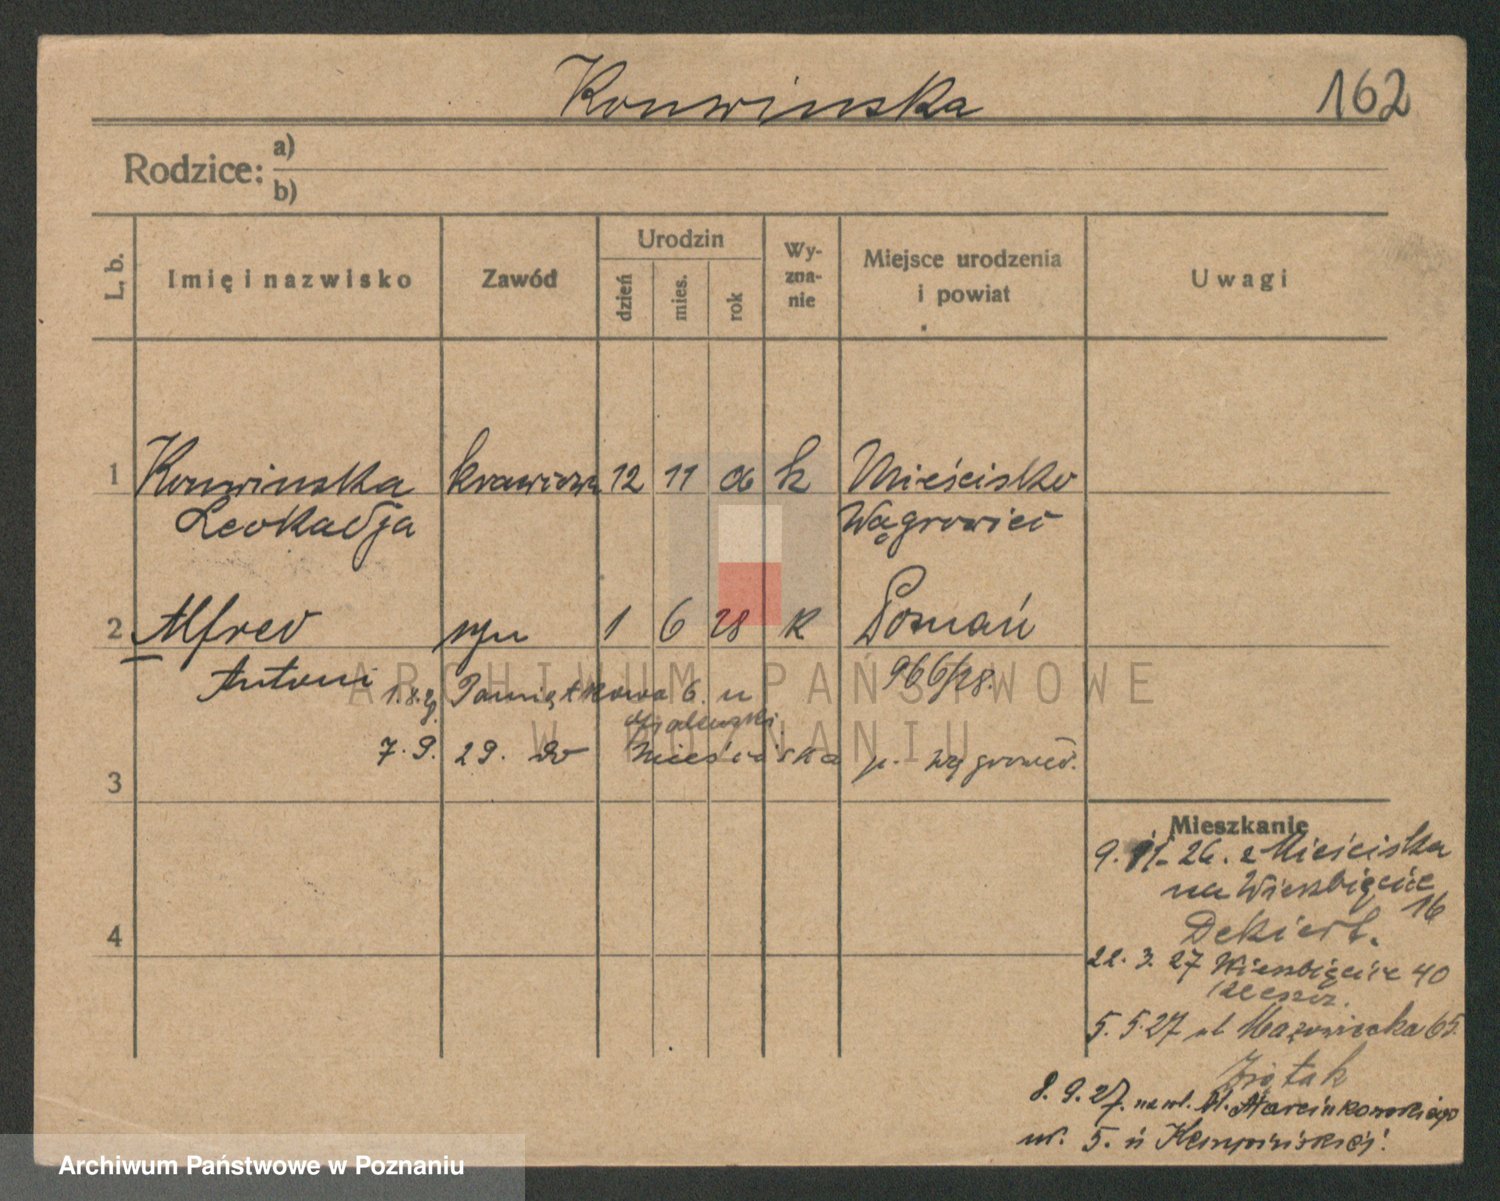 Konwinska 162
Rodzice: a)
b)
L. b. Imię i nazwisko Zawód Urodzin dzień mies. rok Wy-zna-nie Miejsce urodzenia i powiat Uwagi
1 Konwinska krawcowa 12 11 06 k Mieścisko
Leokadja Wągrowiec
2 Alfred syn 1 6 28 k Poznań
Antoni 966/28.
1.8.29. Pamiątkowa 6. u
7.9. 29. do Mieściska p. Wągrowiec.
3
Mieszkanie
9. 11. 26. z Mieściska
na Wierzbięcice 16
Dekiert.
4
22. 3. 27 Wierzbięcice 40
5. 5. 27 ul Mazowiecka 65.
8. 9. 27. na ul. Al. Marcinkowskiego
nr. 5. u Kempińskiej.
ARCHIWUM PAŃSTWOWE
W POZNANIU
Archiwum Państwowe w Poznaniu